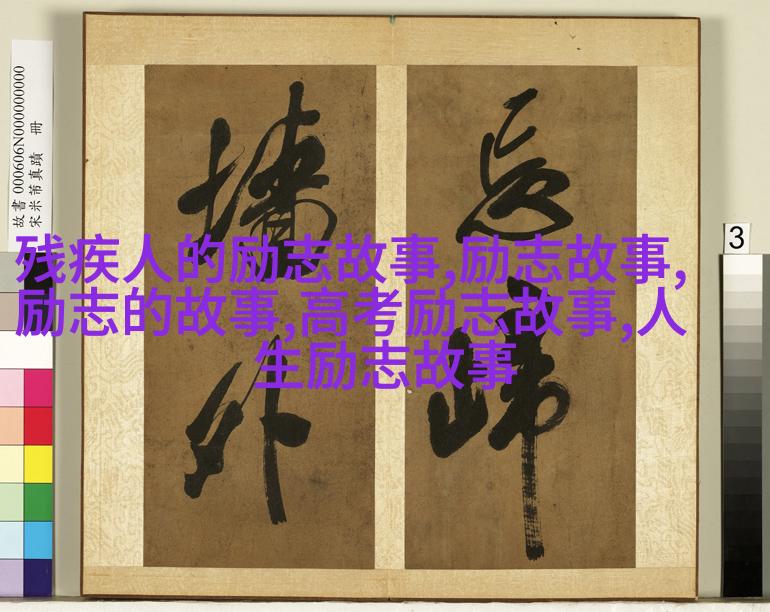 残疾人的励志故事,励志故事,
励志的故事,高考励志故事,人
生励志故事
忘歸
墻外
故書 000606N000000000
宋米芾真蹟 冊
3